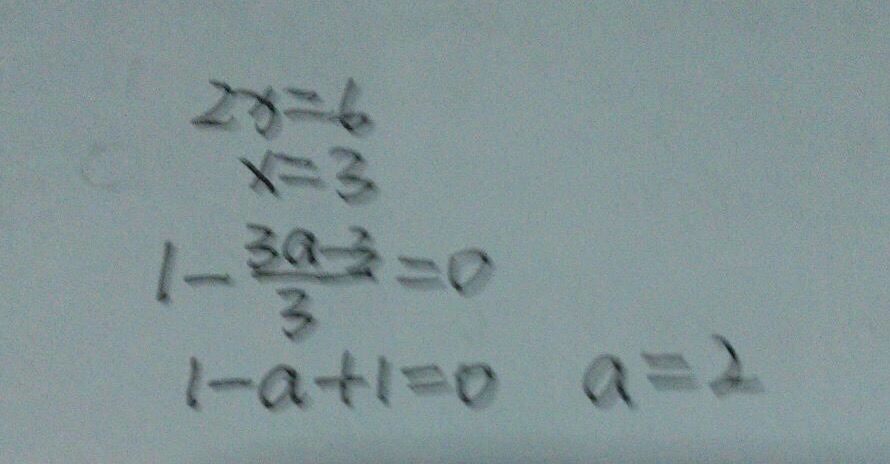 2x=6
x=3
1-\frac{3a-3}{3}=0
1-a+1=0 a=2